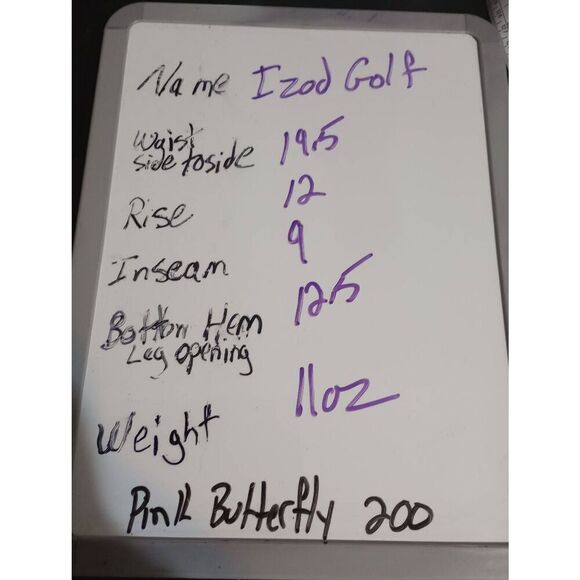 Name Izod Golf
Waist
side to side 19.5
Rise 12
Inseam 9
Bottom Hem 12.5
Leg opening
Weight 11oz
Pink Butterfly 200